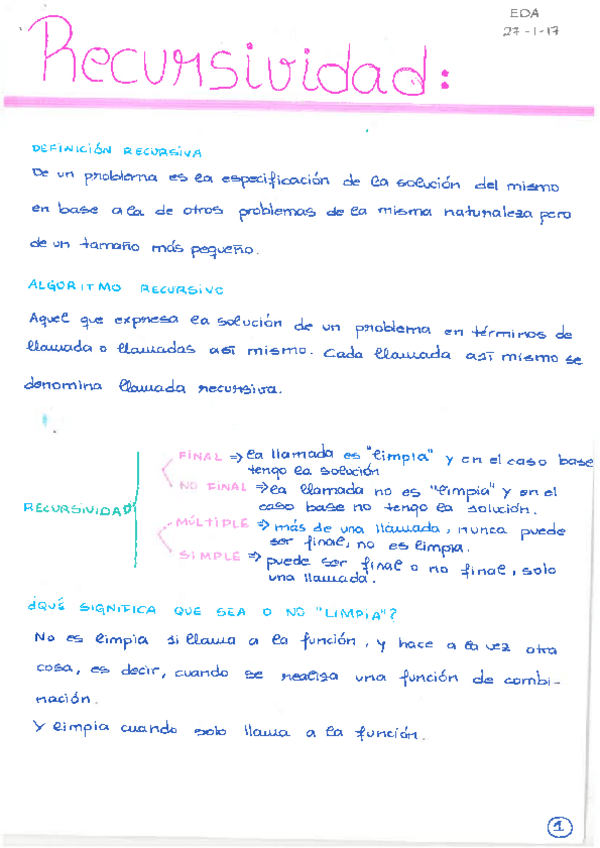 EDA
27-1-17
Recursividad:
DEFINICIÓN RECURSIVA
De un problema es la especificación de la solución del mismo
en base a la de otros problemas de la misma naturaleza pero
de un tamaño más pequeño.
ALGORITMO RECURSIVO
Aquel que expresa la solución de un problema en términos de
llamada o llamadas así mismo. Cada llamada así mismo se
denomina llamada recursiva.
FINAL => la llamada es "limpia" y en el caso base
tengo la solución
NO FINAL => la llamada no es "limpia" y en el
caso base no tengo la solución.
RECURSIVIDAD
MÚLTIPLE => más de una llamada, nunca puede
ser final, no es limpia.
SIMPLE => puede ser final o no final, solo
una llamada.
¿QUÉ SIGNIFICA QUE SEA O NO "LIMPIA"?
No es limpia si llama a la función, y hace a la vez otra
cosa, es decir, cuando se realiza una función de combi-
nación.
Y limpia cuando solo llama a la función.
1